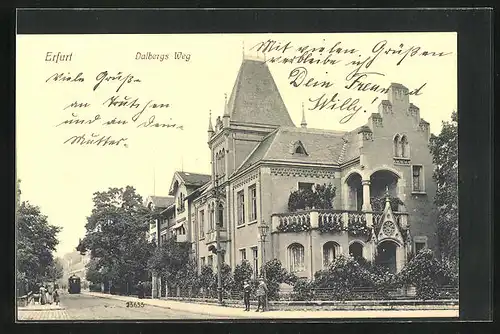 Erfurt
Dalbergs Weg
Mit vielen Grüßen
verbleibe ich
Dein Freund
Willy!
Viele Grüße
an Trutchen
und an Deine
Mutter
23635